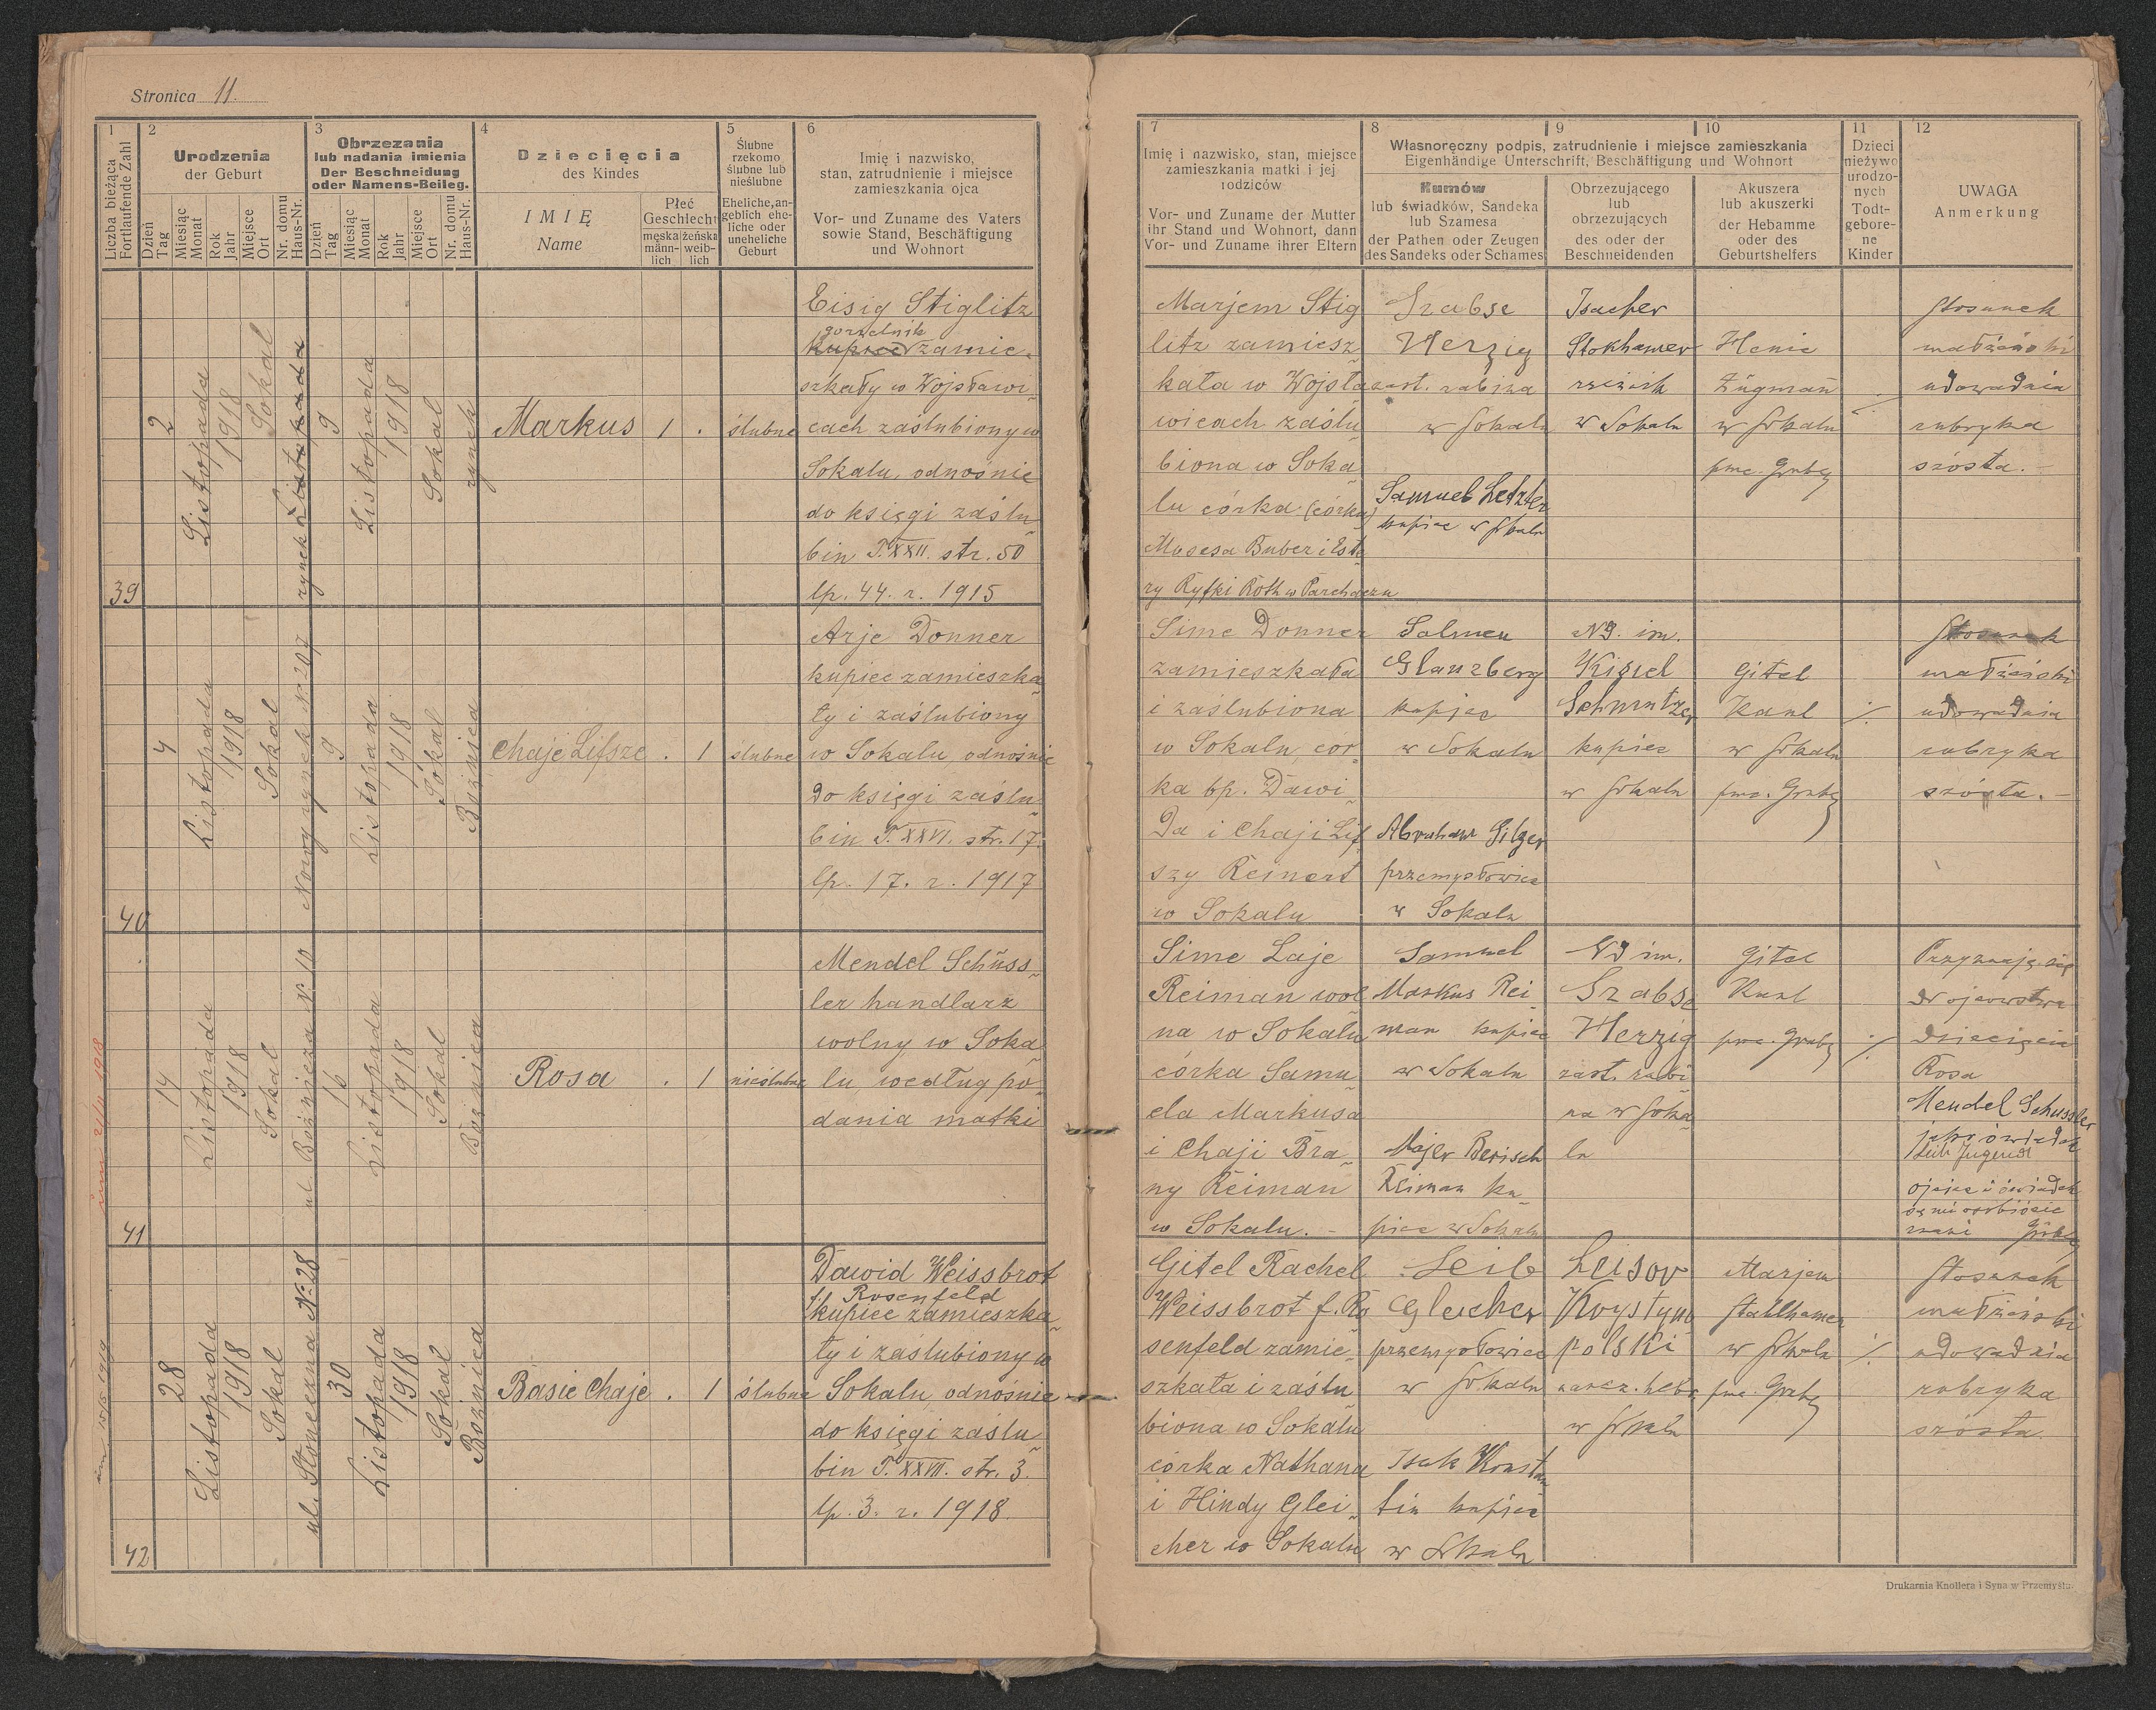 Stronica 11.
1
Liczba bieżąca
Fortlaufende Zahl
2
Urodzenia
der Geburt
Dzień
Tag
Miesiąc
Monat
Rok
Jahr
Miejsce
Ort
Nr. domu
Haus-Nr.
3
Obrzezania
lub nadania imienia
Der Beschneidung
oder Namens-Beileg.
Dzień
Tag
Miesiąc
Monat
Rok
Jahr
Miejsce
Ort
Nr. domu
Haus-Nr.
4
Dziecięcia
des Kindes
IMIĘ
Name
Płeć
Geschlecht
męska
männ-
lich
żeńska
weib-
lich
5
Ślubne
rzekomo
ślubne lub
nieślubne
Eheliche, an-
geblich ehe-
liche oder
uneheliche
Geburt
6
Imię i nazwisko,
stan, zatrudnienie i miejsce
zamieszkania ojca
Vor- und Zuname des Vaters
sowie Stand, Beschäftigung
und Wohnort
7
Imię i nazwisko, stan, miejsce
zamieszkania matki i jej
rodziców
Vor- und Zuname der Mutter
ihr Stand und Wohnort, dann
Vor- und Zuname ihrer Eltern
8
9
10
Własnoręczny podpis, zatrudnienie i miejsce zamieszkania
Eigenhändige Unterschrift, Beschäftigung und Wohnort
Kumów
lub świadków, Sandeka
lub Szamesa
der Pathen oder Zeugen
des Sandeks oder Schames
Obrzezującego
lub
obrzezujących
des oder der
Beschneidenden
Akuszera
lub akuszerki
der Hebamme
oder des
Geburtshelfers
11
Dzieci
nieżywo
urodzo-
nych
Todt-
gebore-
ne
Kinder
12
UWAGA
Anmerkung
39
2
Listopada
1918
Sokal
rynek Listopada
9
Listopada
1918
Sokal
rynek
Markus
1
.
ślubne
Eisig Stiglitz
gorzelnik
kupiec zamie-
szkały w Wojsławi-
cach zaślubiony w
Sokalu, odnośnie
do księgi zaślu-
bin T. XXII. str. 50
lp. 44. r. 1915
Marjem Stig
litz zamiesz
kała w Wojsła
wicach zaślu
biona w Soka
lu córka (córka)
Mosesa Buber i Este
ry Ryfki Roth w Parchaczu
Szabse
Herzig
zast. rabina
w Sokalu
Samuel Letzter
kupiec w Sokalu
Isacher
Stokhamer
rzezak
w Sokalu
Henie
Zugman
w Sokalu
Stosunek
małżeński
udowadnia
rubryka
szósta. -
40
4
Listopada
1918
Sokal
Nowy rynek Nr 207
9
Listopada
1918
Sokal
Bożnica
Chaje Lifsze
.
1
ślubne
Arje Donner
kupiec zamieszka
ły i zaślubiony
w Sokalu, odnośnie
do księgi zaślu
bin T. XXVI. str. 17.
lp. 17. r. 1917
Sime Donner
zamieszkała
i zaślubiona
w Sokalu, cór
ka bp. Dawi
da i Chaji Lif
szy Reinert
w Sokalu
Salmen
Glanzberg
kupiec
w Sokalu
Abraham Silger
przemysłowiec
w Sokalu
Nd. im.
Kisiel
Schmutzer
kupiec
w Sokalu
Gitel
Kanl
w Sokalu
Stosunek
małżeński
udowadnia
rubryka
szósta. -
41
14
Listopada
1918
Sokal
ul. Bożnicza N 10
16
Listopada
1918
Sokal
Bożnica
Rosa
.
1
nieślubne
Mendel Schüss
ler handlarz
wolny w Soka
lu, według po
dania matki
Sime Laje
Reiman wol
na w Sokalu
córka Samu
ela Markusa
i Chaji Bra
ny Reiman
w Sokalu. -
Samuel
Markus Rei
man kupiec
w Sokalu
Majer Berisch
Reiman ku
piec w Sokalu
Nd im.
Szabse
Herzig
zast. rabi
na w Soka
lu
Gitel
Kanl
Przyznaję się
do ojcowstwa
dziecięcia
Rosa
Mendel Schussler
jako świadek
Leib Jugend
ojciec i świadek
są mi osobiście
znani
42
28
Listopada
1918
Sokal
ul. Słoneczna No 28
30
Listopada
1918
Sokal
Bożnica
Basie Chaje
.
1
ślubne
Dawid Weissbrot
f. Rosenfeld
kupiec zamieszka
ły i zaślubiony w
Sokalu, odnośnie
do księgi zaślu
bin T. XXVII. str. 3.
lp. 3. r. 1918.
Gitel Rachel
Weissbrot f. Ro
senfeld zamie
szkała i zaślu
biona w Sokalu
córka Nathana
i Hindy Glei
cher w Sokalu
Leib
Gleicher
przemysłowiec
w Sokalu
Isak Konstan
tin kupiec
w Sokalu
Leisor
Krystyno
polski
w Sokalu
Marjem
Stahlhamer
w Sokalu
Stosunek
małżeński
udowadnia
rubryka
szósta.
Drukarnia Knollera i Syna w Przemyślu.